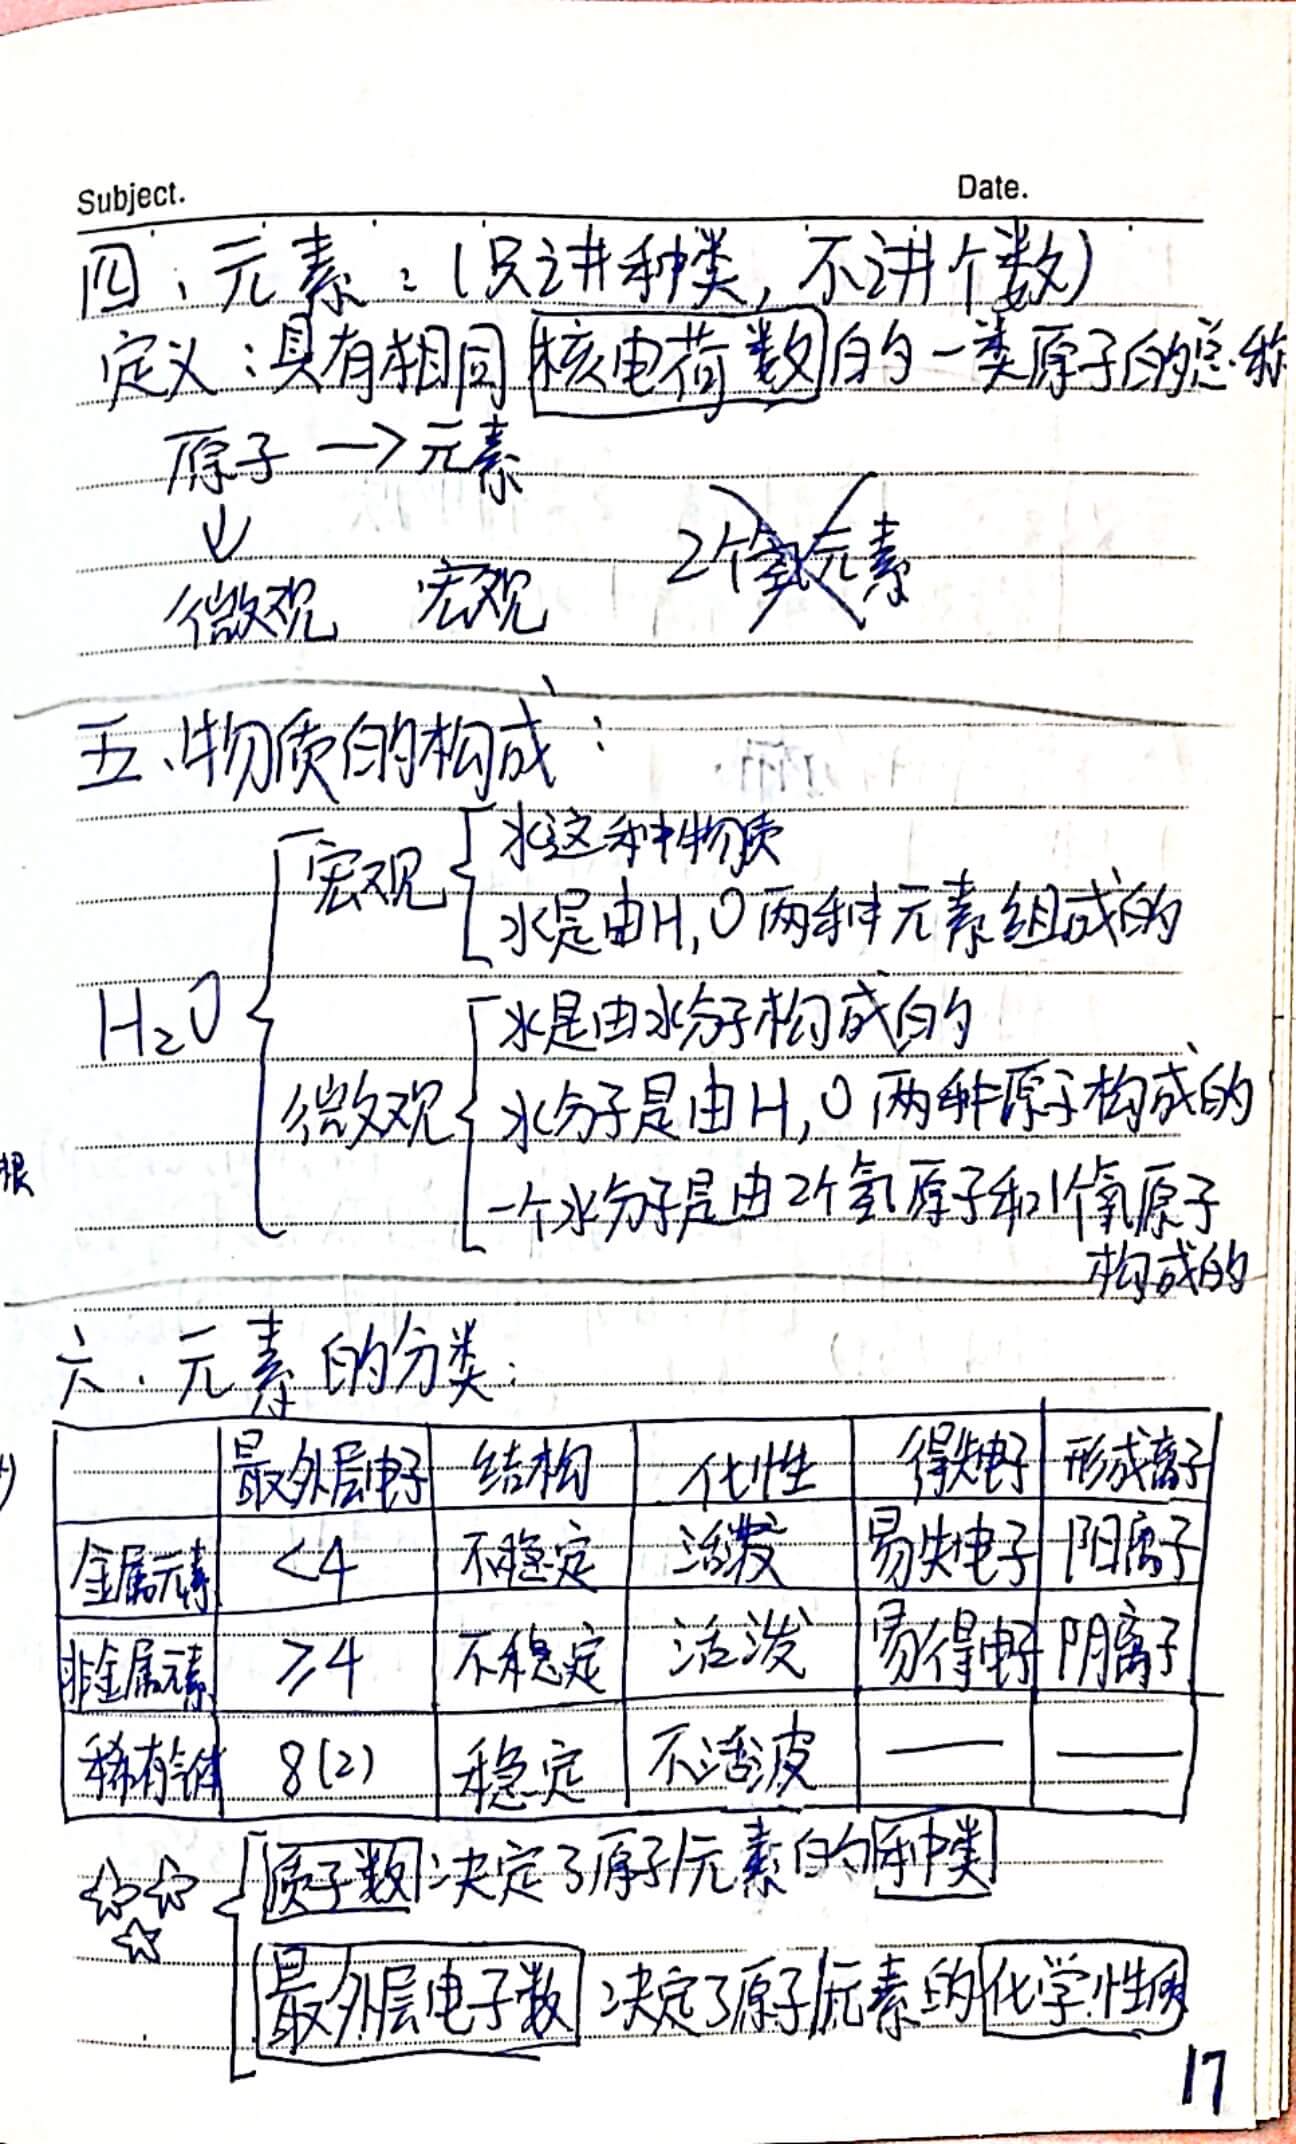 Subject. Date.
四、元素：(只讲种类，不讲个数)
定义：具有相同核电荷数的一类原子的总称
原子 → 元素
↓
2个氧元素
微观 宏观
五、物质的构成：
H₂O
宏观
水这种物质
水是由H，O两种元素组成的
微观
水是由水分子构成的
水分子是由H，O两种原子构成的
一个水分子是由2个氢原子和1个氧原子
构成的
根
六、元素的分类：
最外层电子 结构 化性 得失电子 形成离子
金属元素 <4 不稳定 活泼 易失电子 阳离子
非金属元素 ≥4 不稳定 活泼 易得电子 阴离子
稀有气体 8(2) 稳定 不活波 — —
质子数决定了原子/元素的种类
最外层电子数决定了原子/元素的化学性质
17